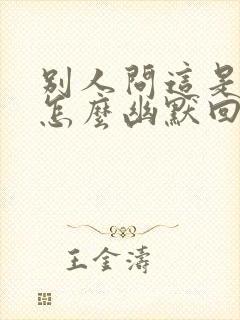 別人問這是
怎麼幽默回
王金濤